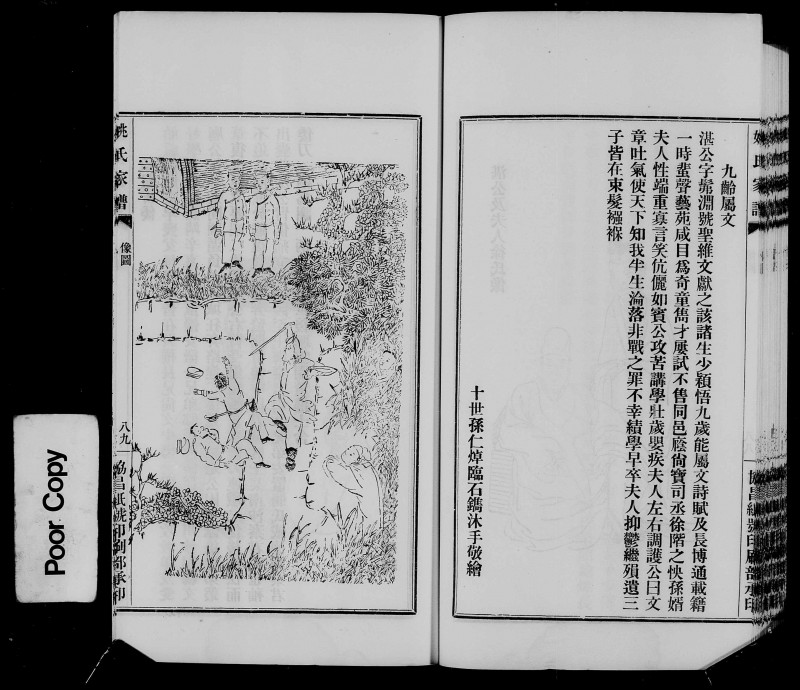 九齡屬文
湛公字鬯淵號聖維文獻之該諸生少穎悟九歲能屬文詩賦及長博通載籍
一時蜚聲藝苑咸目爲奇童雋才屢試不售同邑廕尙寶司丞徐階之怏孫婿
夫人性端重寡言笑伉儷如賓公攻苦講學壯歲嬰疾夫人左右調護公曰文
章吐氣使天下知我半生淪落非戰之罪不幸績學早卒夫人抑鬱繼殞遺三
子皆在束髮襁褓
十世孫仁焯臨石鐫沐手敬繪
姚氏家譜
像圖
八九
協昌紙號印刷部承印
Poor Copy